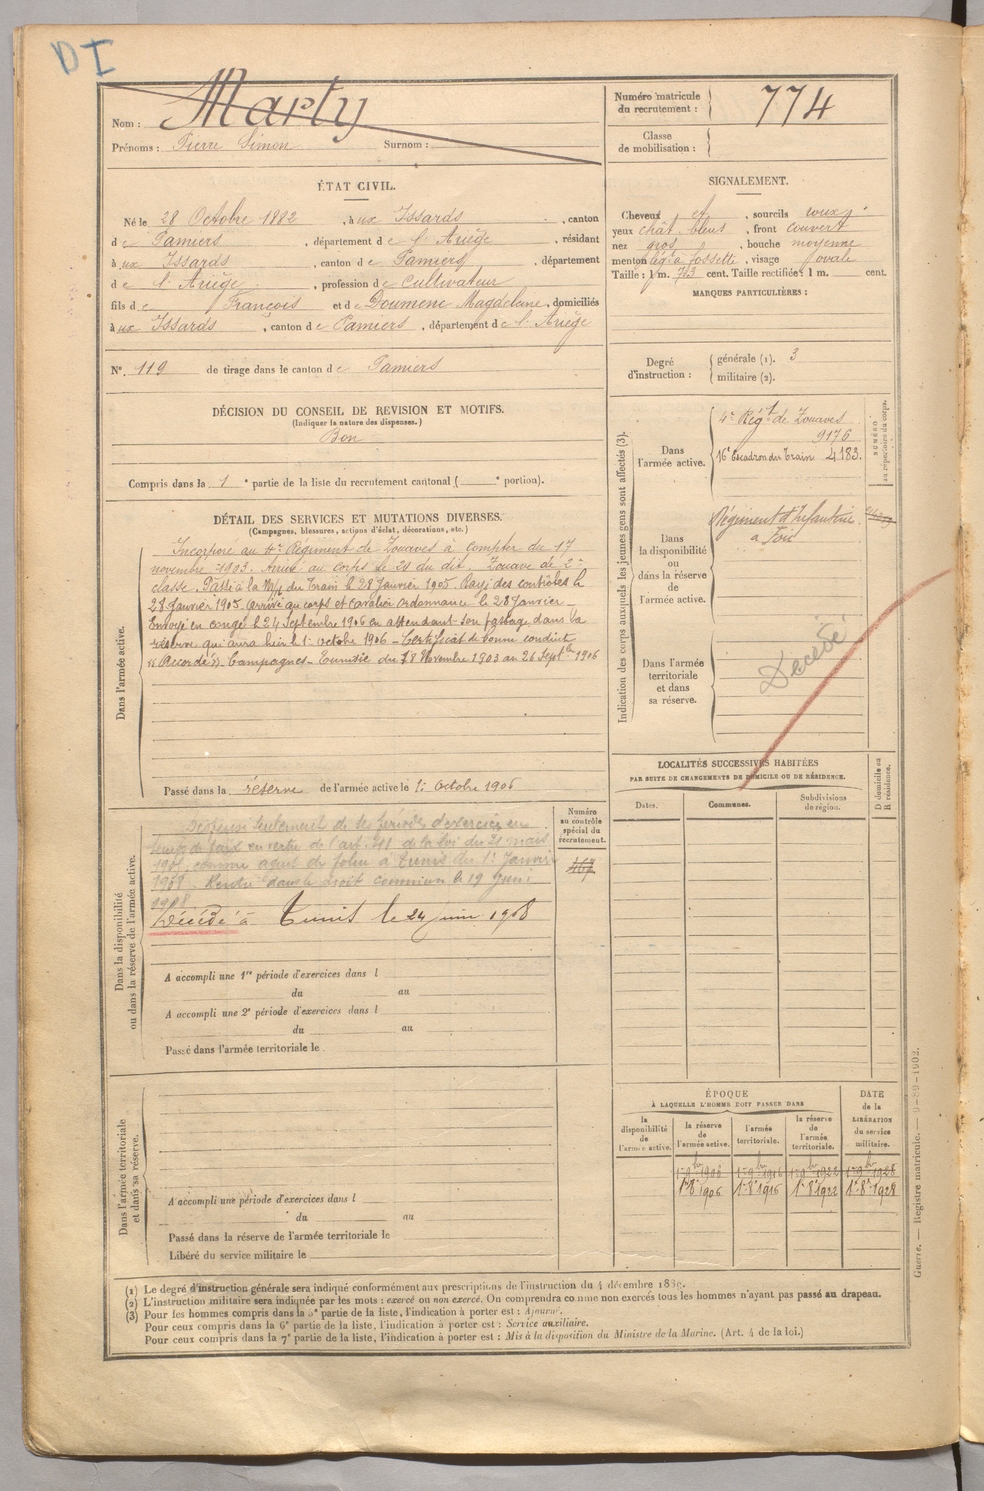 DI
Nom : Marty
Prénoms : Pierre Simon Surnom :
Numéro matricule du recrutement : 774
Classe de mobilisation :
ÉTAT CIVIL.
Né le 28 Octobre 1882, à ux Issards, canton
de Pamiers, département de l'Ariège, résidant
à ux Issards, canton de Pamiers, département
de l'Ariège, profession de Cultivateur
fils de François et de Doumenc Magdeleine, domiciliés
à ux Issards, canton de Pamiers, département de l'Ariège
N° 119 de tirage dans le canton de Pamiers
SIGNALEMENT.
Cheveux et, sourcils roux
yeux chât. bleus, front couvert
nez gros, bouche moyenne
menton à fossette, visage ovale
Taille : 1 m. 73 cent. Taille rectifiée : 1 m. cent.
MARQUES PARTICULIÈRES :
Degré d'instruction : générale (1). 3
militaire (2).
DÉCISION DU CONSEIL DE REVISION ET MOTIFS.
(Indiquer la nature des dispenses.)
Bon
Compris dans la 1e partie de la liste du recrutement cantonal ( e portion).
DÉTAIL DES SERVICES ET MUTATIONS DIVERSES.
(Campagnes, blessures, actions d'éclat, décorations, etc.)
Dans l'armée active.
Incorporé au 4e Régiment de Zouaves à compter du 17
novembre 1903. Arrivé au corps le 21 du dit. Zouave de 2e
classe. Passé à la du Train le 28 Janvier 1905. Rayé des contrôles le
28 Janvier 1905. Arrivé au corps et cavalier ordonnance le 28 Janvier
Envoyé en congé le 24 Septembre 1906 en attendant son passage dans la
réserve qui aura lieu le 1er octobre 1906 - Certificat de bonne conduite
"Accordé". Campagnes - Tunisie du 18 Novembre 1903 au 26 Septbre 1906
Passé dans la réserve de l'armée active le 1er Octobre 1906
Indication des corps auxquels les jeunes gens sont affectés (3).
NUMÉRO au répertoire du corps.
Dans l'armée active.
4e Régt de Zouaves
9176
16e Escadron du Train 4183.
Dans la disponibilité ou dans la réserve de l'armée active.
Régiment d'Infanterie
à Foix
Dans l'armée territoriale et dans sa réserve.
Décédé
LOCALITÉS SUCCESSIVES HABITÉES
PAR SUITE DE CHANGEMENTS DE DOMICILE OU DE RÉSIDENCE.
Dates. Communes. Subdivisions de région. D domicile ou R résidence.
Dans la disponibilité ou dans la réserve de l'armée active.
Numéro au contrôle spécial du recrutement.
467
Dispensé seulement de ses périodes d'exercices en
temps de paix en vertu de l'art. de la loi du 21 mars
1905, comme agent de police à Tunis du 1er Janvier
1908. Rentré dans le droit commun le 19 Juin
1908
Décédé à Tunis le 24 juin 1908
A accompli une 1re période d'exercices dans l
du au
A accompli une 2e période d'exercices dans l
du au
Passé dans l'armée territoriale le
Dans l'armée territoriale et dans sa réserve.
A accompli une période d'exercices dans l
du au
Passé dans la réserve de l'armée territoriale le
Libéré du service militaire le
ÉPOQUE
À LAQUELLE L'HOMME DOIT PASSER DANS
DATE de la LIBÉRATION du service militaire.
la disponibilité de l'armée active. la réserve de l'armée active. l'armée territoriale. la réserve de l'armée territoriale.
1er 8bre 1906 1er 8bre 1916 1er 8bre 1922 1er 8bre 1928
Guerre. — Registre matricule. — 9-89-1902.
(1) Le degré d'instruction générale sera indiqué conformément aux prescriptions de l'instruction du 4 décembre 1889.
(2) L'instruction militaire sera indiquée par les mots : exercé ou non exercé. On comprendra comme non exercés tous les hommes n'ayant pas passé au drapeau.
(3) Pour les hommes compris dans la 5e partie de la liste, l'indication à porter est : Ajourné.
Pour ceux compris dans la 6e partie de la liste, l'indication à porter est : Service auxiliaire.
Pour ceux compris dans la 7e partie de la liste, l'indication à porter est : Mis à la disposition du Ministre de la Marine. (Art. 4 de la loi.)